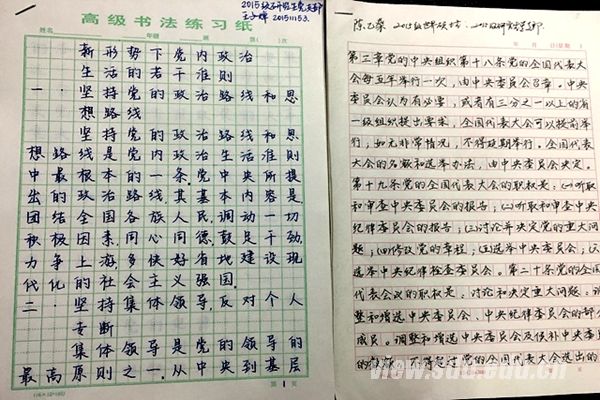 2015级研究生党支部
高级书法练习纸
姓名 年级 班 第( )次
新形势下党内政治
生活的若干准则
一·坚持党的政治路线和思
想路线
坚持党的政治路线和思
想路线是党内政治生活准则
中最根本的一条.党中央所提
出的政治路线,其基本内容是,
团结全国各族人民,调动一切
积极因素,同心同德,鼓足干劲,
力争上游,多快好省地建设现
代化的社会主义强国.
二·坚持集体领导,反对个人
专断
集体领导是党的领导的
最高原则之一.从中央到基层
第1页
年 月 日(星期 )
第三章党的中央组织第十八条党的全国代表大
会每五年举行一次,由中央委员会召集。中央
委员会认为有必要,或者有三分之一以上的省
一级组织提出要求,全国代表大会可以提前举
行;如无非常情况,不得延期举行。全国代表
大会的名额和选举办法,由中央委员会决定。
第十九条党的全国代表大会的职权是:(一)听取
和审查中央委员会的报告;(二)听取和审查中央
纪律委员会的报告;(三)讨论并决定党的重大问
题;(四)修改党的章程;(五)选举中央委员会;(六)
选举中央纪律检查委员会。第二十条党的全国
代表会议的职权是:讨论和决定重大问题;调
整和增选中央委员会、中央纪律委员会的部分
成员。调整和增选中央委员会及候补中央委员
的数额,不得超过党的全国代表大会选出的
view.sdu.edu.cn